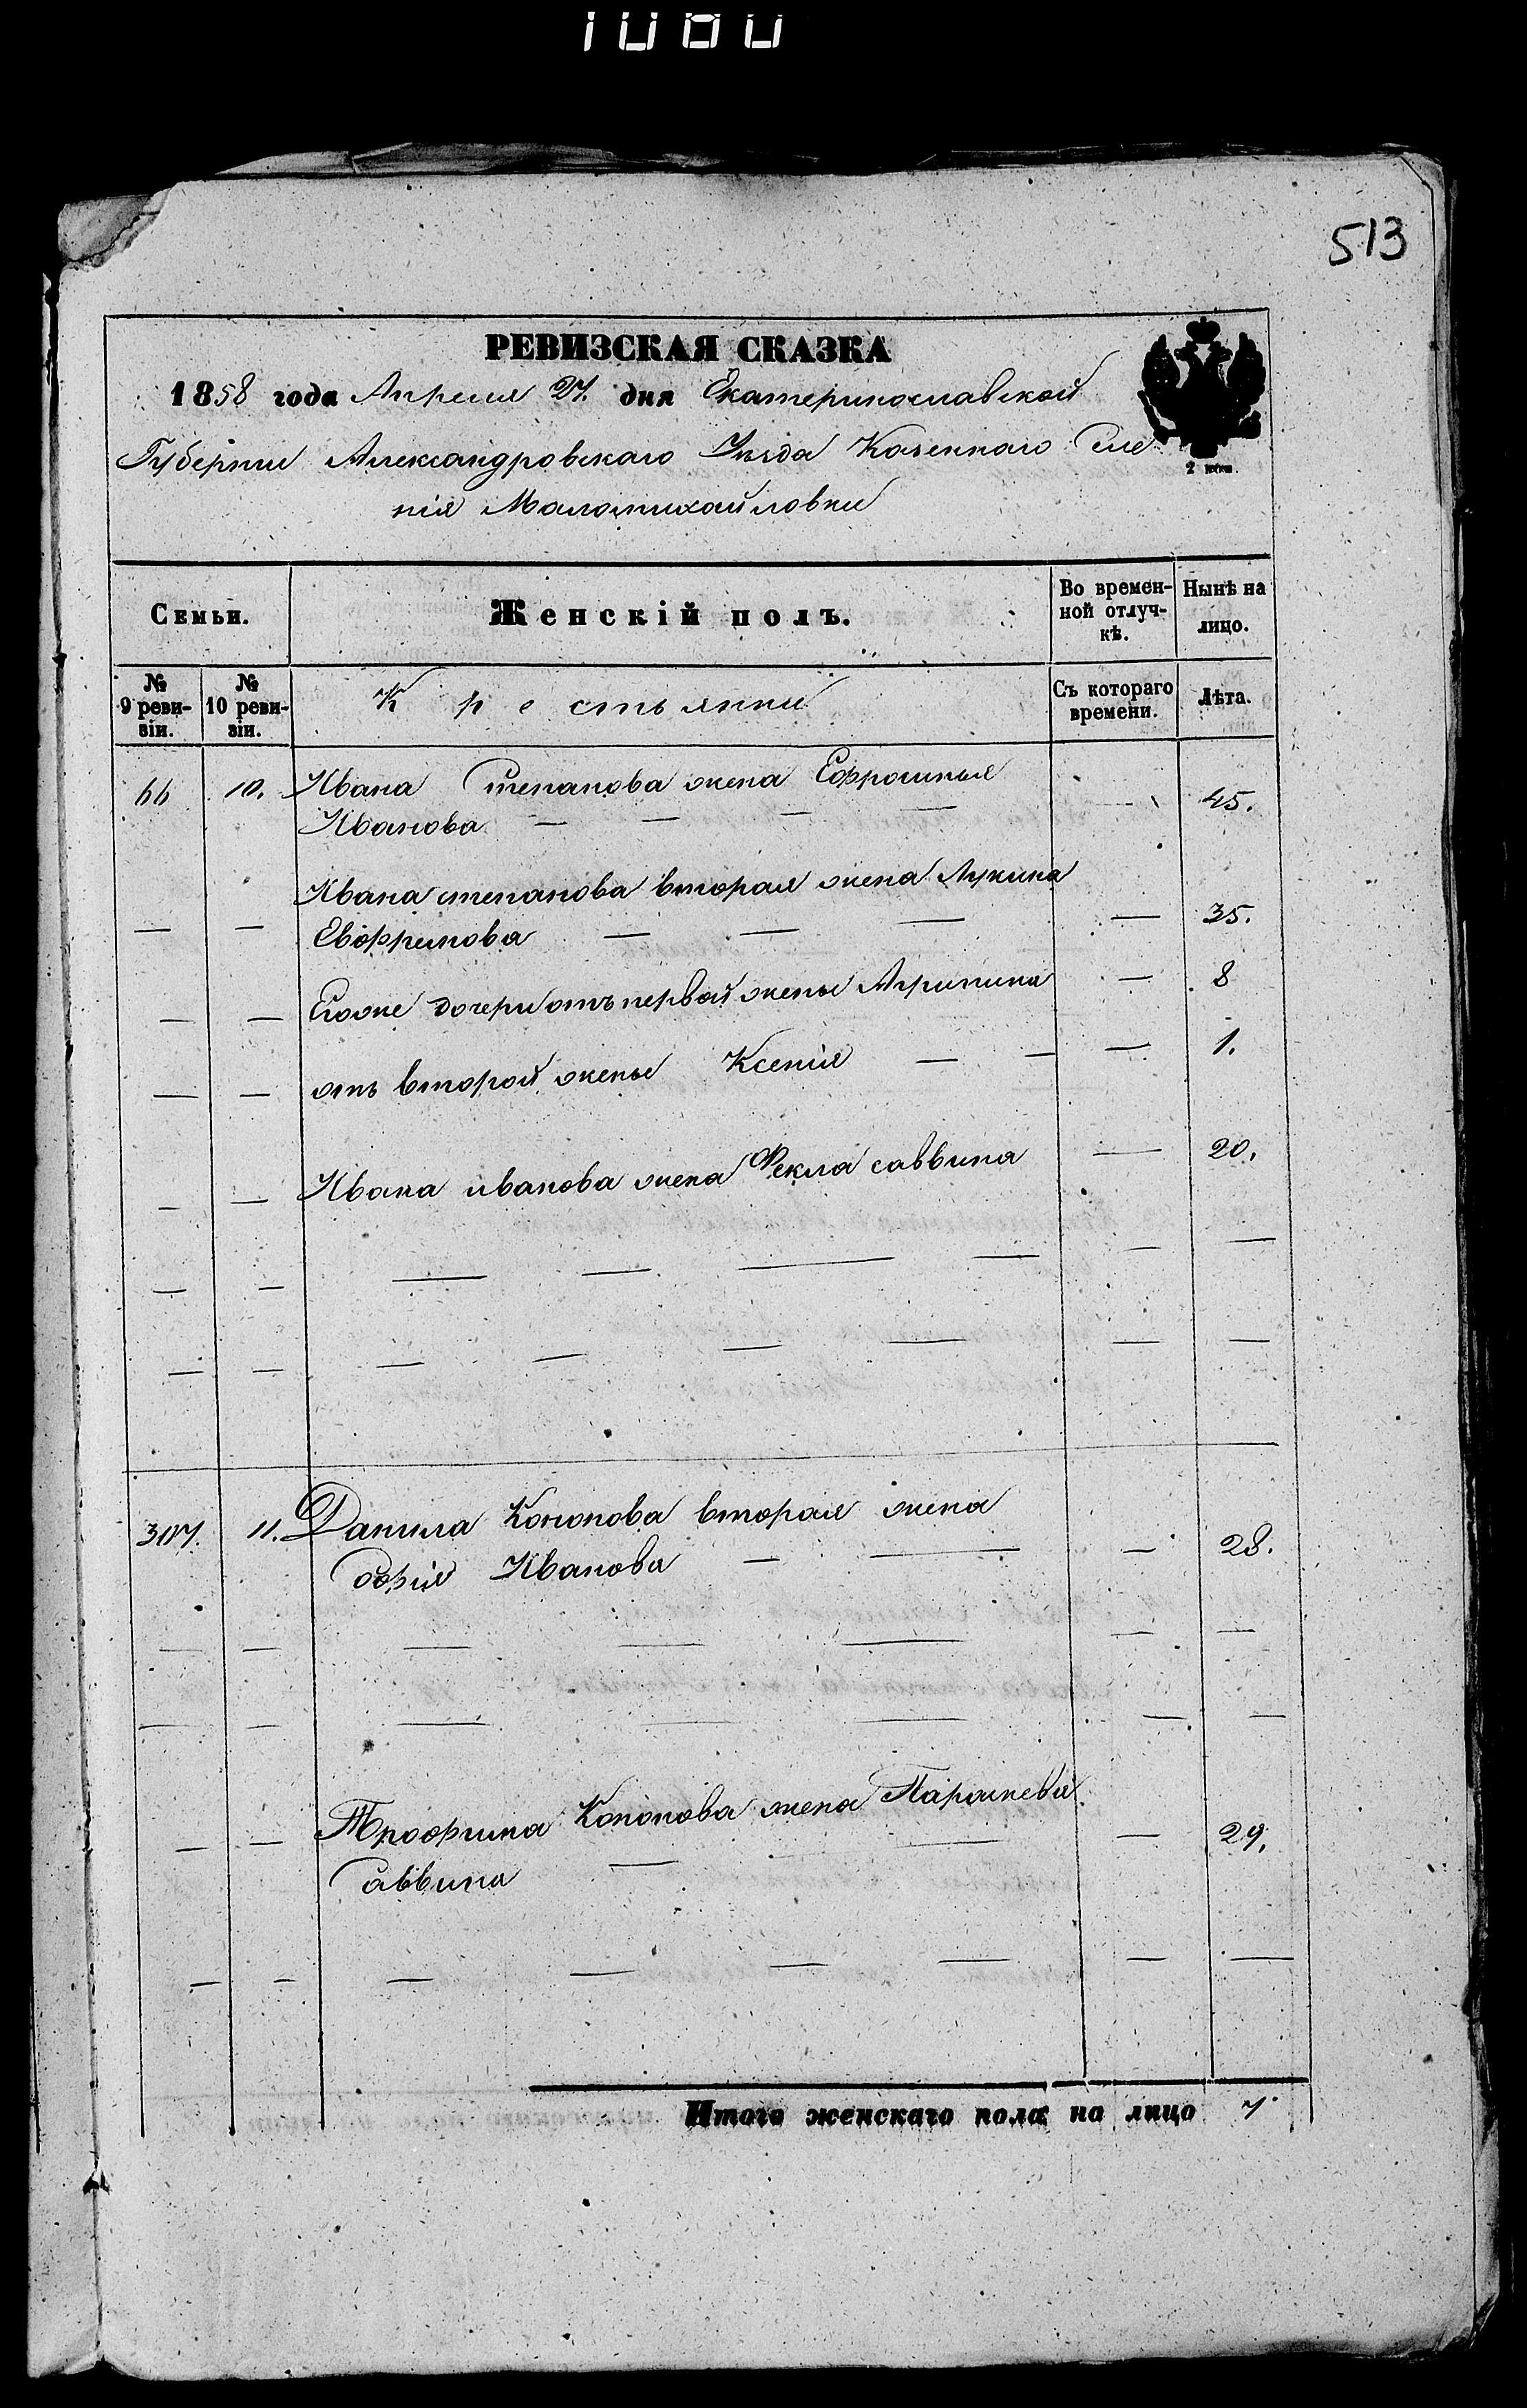 1080
513
РЕВИЗСКАЯ СКАЗКА
1858 года Апреля 27. дня Екатеринославской
Губерніи Александровскаго Уѣзда Казеннаго Селе
нія Маломихайловки
2 коп.
Семьи.
Женскій полъ.
Во времен-
ной отлуч-
кѣ.
Нынѣ на
лицо.
№
9 реви-
зіи.
№
10 реви-
зіи.
Крестьянки
Съ котораго
времени.
Лѣта.
66 10. Ивана Степанова жена Ефросинья
Иванова — — — — — 45.
Ивана степанова вторая жена Лукина
— — Евдокимова — — — — 35.
— — Егоже дочери отъ первой жены Агрипина — 8
— — отъ второй жены Ксенія — — — 1.
— — Ивана иванова жена Фекла саввина — 20.
— — — — — — — —
— — — — — — — —
307. 11. Данила Кононова вторая жена
Софія Иванова — — — 28.
— — — — — — —
— — — — — — —
— — Трофима Кононова жена Параскева
Саввина — — — 29.
— — — — — — — —
Итого женскаго пола на лицо 7